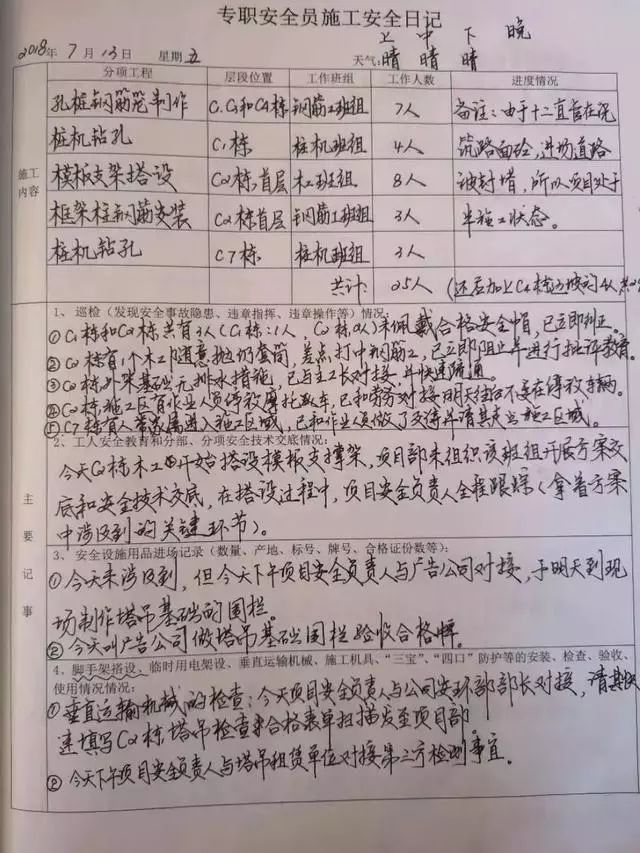 专职安全员施工安全日记
上 中 下 晚
2018年 7月13日 星期五 天气: 晴 晴 晴
分项工程 层段位置 工作班组 工作人数 进度情况
施工内容
孔桩钢筋笼制作 C1和C4栋 钢筋工班组 7人 备注：由于十二直管在浇
桩机钻孔 C1栋 桩机班组 4人 筑路面砼，进场道路
模板支架搭设 C2栋首层 木工班组 8人 被封堵，所以项目处于
框架柱钢筋安装 C2栋首层 钢筋工班组 3人 半施工状态。
桩机钻孔 C7栋 桩机班组 3人
共计: 25人 (还应加上C4栋边坡的4人
主要记事
1、巡检（发现安全事故隐患、违章指挥、违章操作等）情况:
①C1栋和C2栋共有3人(C1栋:1人，C2栋2人)未佩戴合格安全帽，已立即纠正。
②C2栋有1个木工随意抛扔套筒，差点打中钢筋工，已立即阻止并进行批评教育。
③C2栋外架基础无排水措施，已与主工长对接，并快速疏通。
④C2栋施工区有作业人员停放摩托车，已和劳务对接明天往后不要在停放车辆。
⑤C7栋有人带家属进入施工区域，已和作业人员做了交待并请其走出施工区域。
2、工人安全教育和分部、分项安全技术交底情况:
今天C2栋木工开始搭设模板支撑架，项目部未组织该班组开展方案交
底和安全技术交底，在搭设过程中，项目安全负责人全程跟踪(拿着方案
中涉及到的关键环节)。
3、安全设施用品进场记录（数量、产地、标号、牌号、合格证份数等）:
①今天未涉及到，但今天下午项目安全负责人与广告公司对接，于明天到现
场制作塔吊基础的围栏。
②今天叫广告公司做塔吊基础围栏验收合格牌。
4、脚手架搭设、临时用电架设、垂直运输机械、施工机具、“三宝”、“四口”防护等的安装、检查、验收、
使用情况情况:
①垂直运输机械的检查：今天项目安全负责人与公司安环部部长对接，请其快
速填写C2栋塔吊检查合格表单扫描发至项目部。
②今天下午项目安全负责人与塔吊租赁单位对接第三方检测事宜。